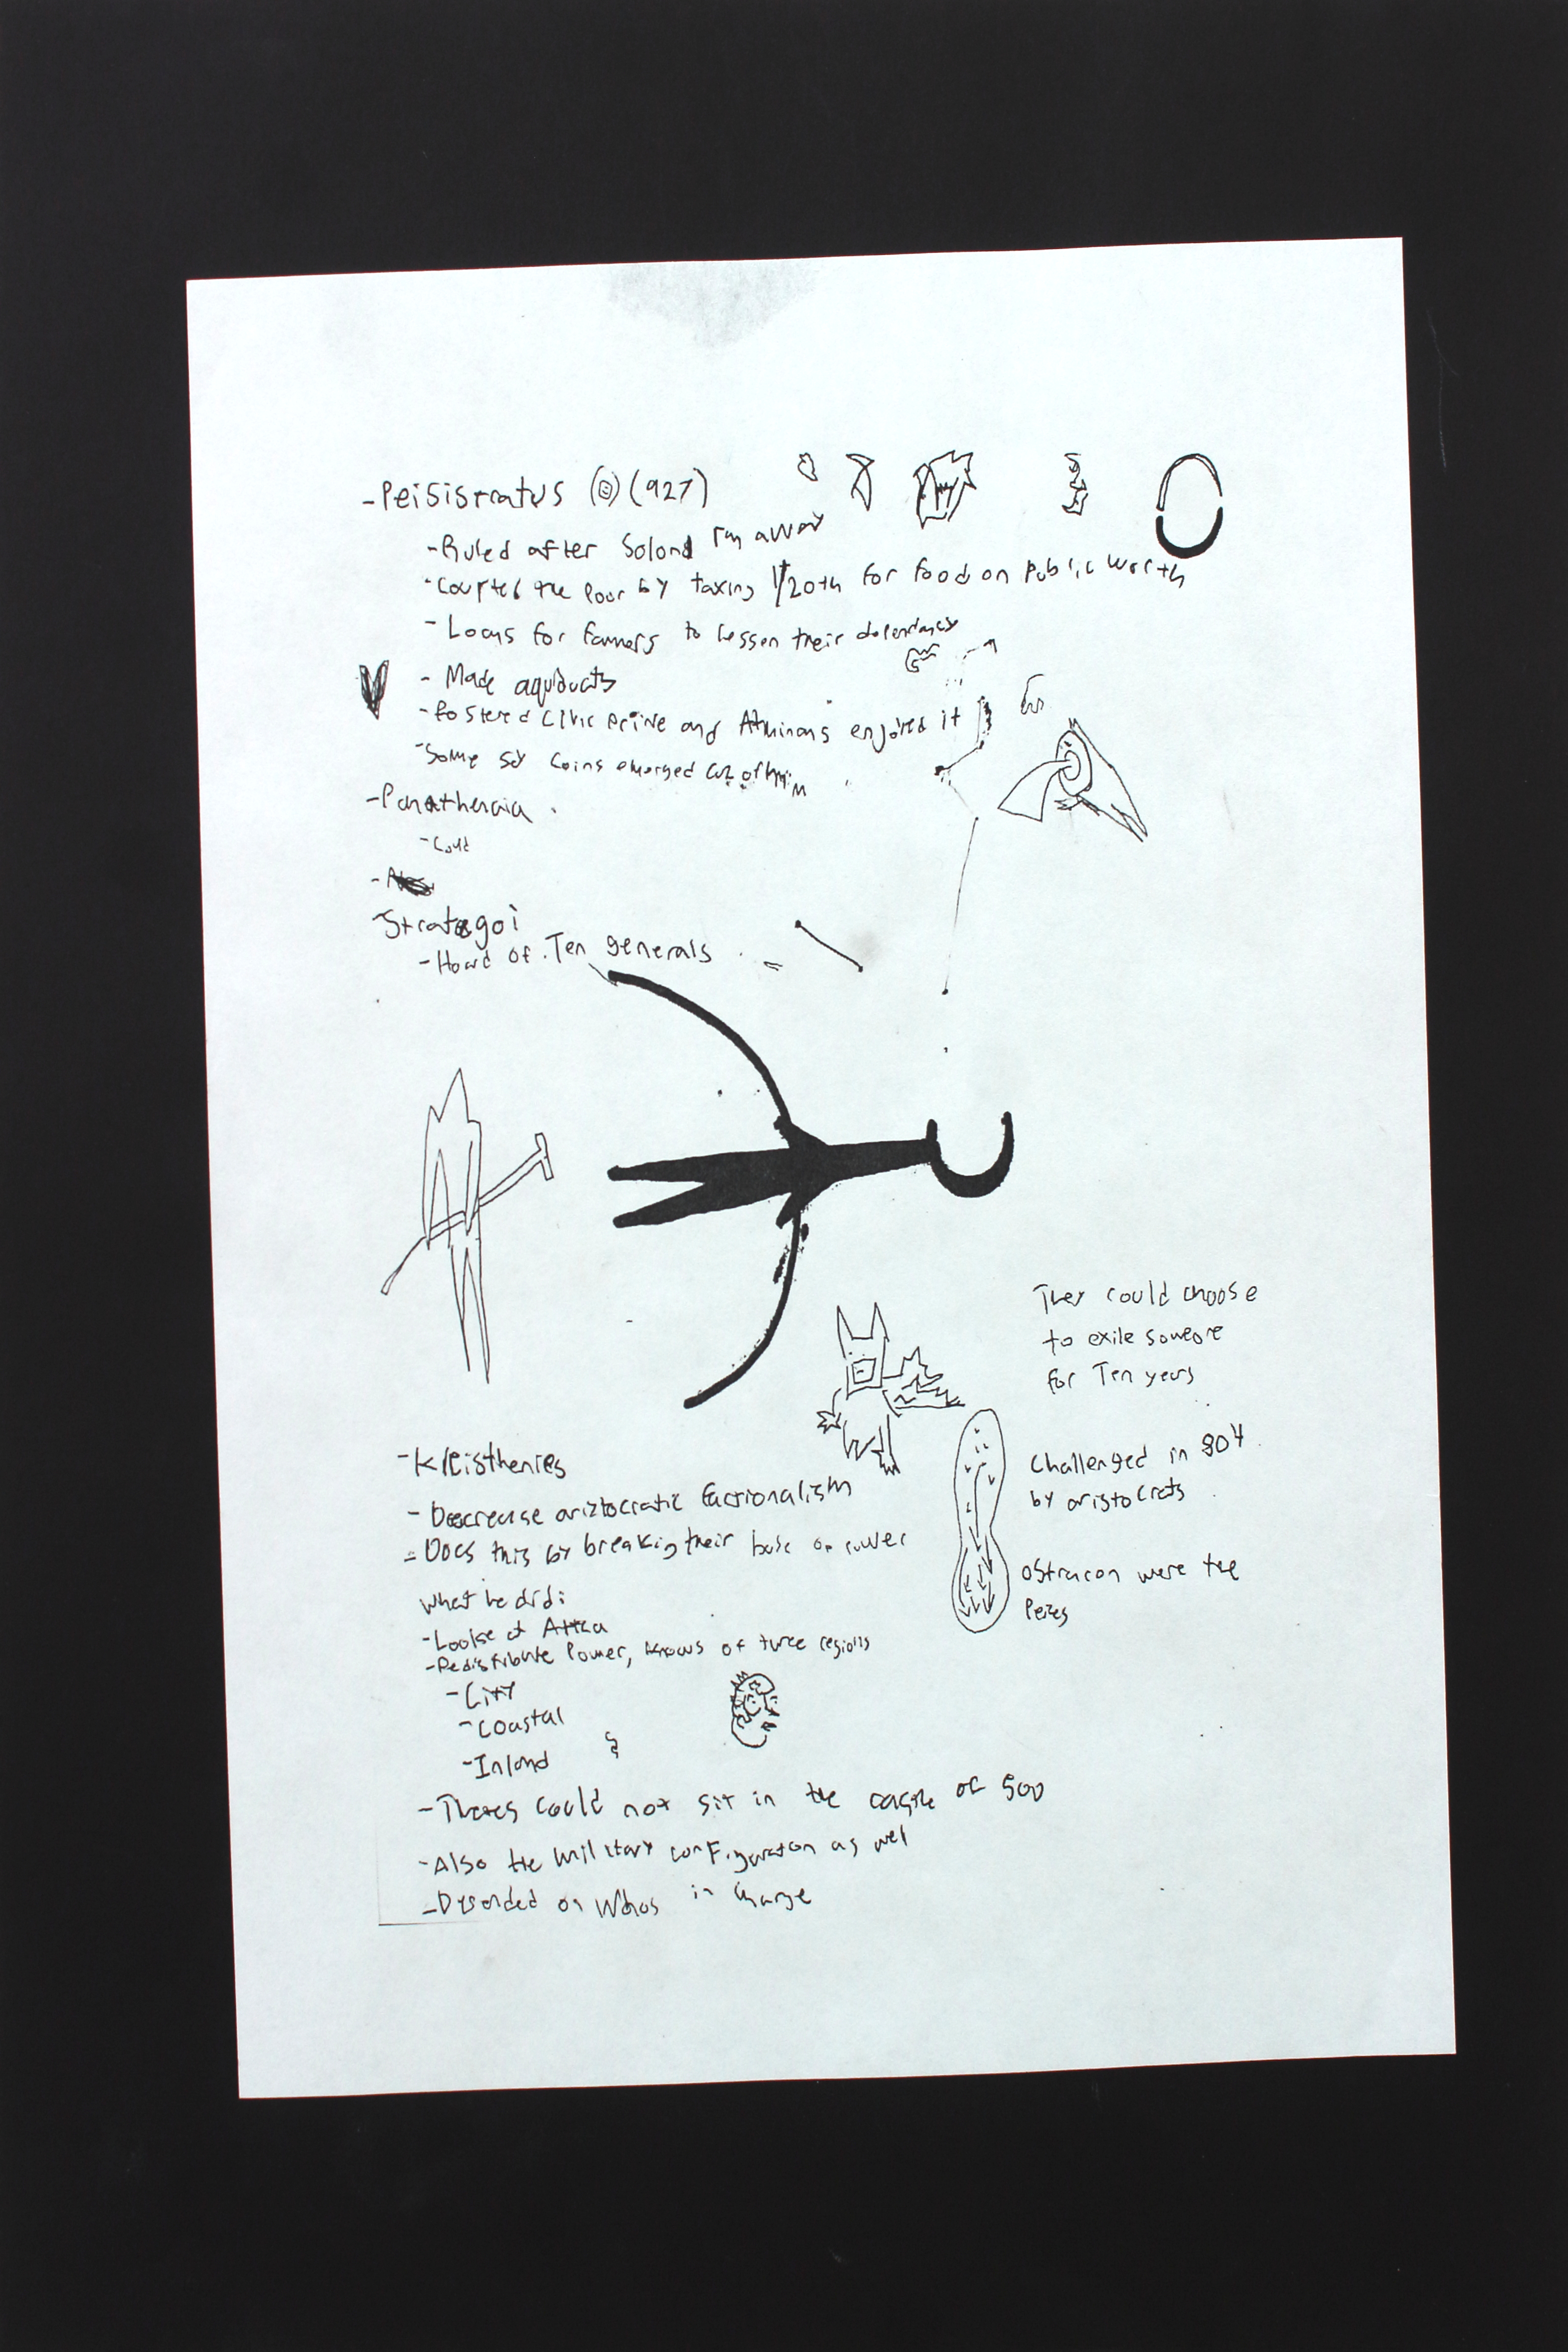 - Peisistratus (927)
- Ruled after Solond ran away
- Courted the Poor by taxing 1/20th for food on public worth
- Loans for farmers to lessen their dependancy
- Made aquiducts
- Fostered Civic Pride and Athinans enjoyed it
- Some say coins emerged cuz of him
- Panathenaia
- Could
- Strategoi
- Hoard of Ten generals
They could choose
to exile someone
for Ten years
Challenged in 504
by aristocrats
Ostracon were the
- Kleisthenes
- Decrease ariztocratic factionalism
- Does this by breaking their base of power
What he did:
- Looked at Attica
- Redistribute Power, knows of three regions
- City
- Coastal
- Inland
- Thetes could not sit in the of 500
- Also the military configuration as wel
- Depended on Whos in charge